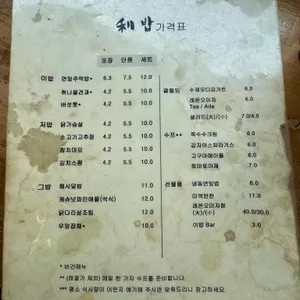 利 밥 가격표
포장 단품 세트
이밥 연잎주먹밥* 6.3 7.5 12.0
취나물견과* 4.2 5.5 10.0
버섯롯* 4.2 5.5 10.0
저밥 닭가슴살 4.2 5.5 10.0
소고기고추장 4.2 5.5 10.0
참치마요 4.2 5.5 10.0
김치스팸 4.2 5.5 10.0
그밥 해시덮밥 11.0
캐슈넛파인애플(석식) 12.0
닭다리살조림 12.0
우엉잡채* 10.0
곁들임 수제오디요거트 6.0
레몬오미자 6.0
Tea / Ade
샐러드(大)/(小) 7.0/4.0
수프** 옥수수크림 6.0
감자아스파라거스 6.0
고구마메이플 6.0
토마토야채 6.0
선물용 냉동연잎밥 6.0
이약반찬 11.0
레몬오미자청
(大)/(小) 40.0/30.0
이밥 Bar 3.0
* 비건메뉴
** (하절기 제외) 매일 한 가지 수프를 준비합니다.
*** 평소 식사량이 어떤지 얘기해 주시면 맞춰드리니 참고하세요.